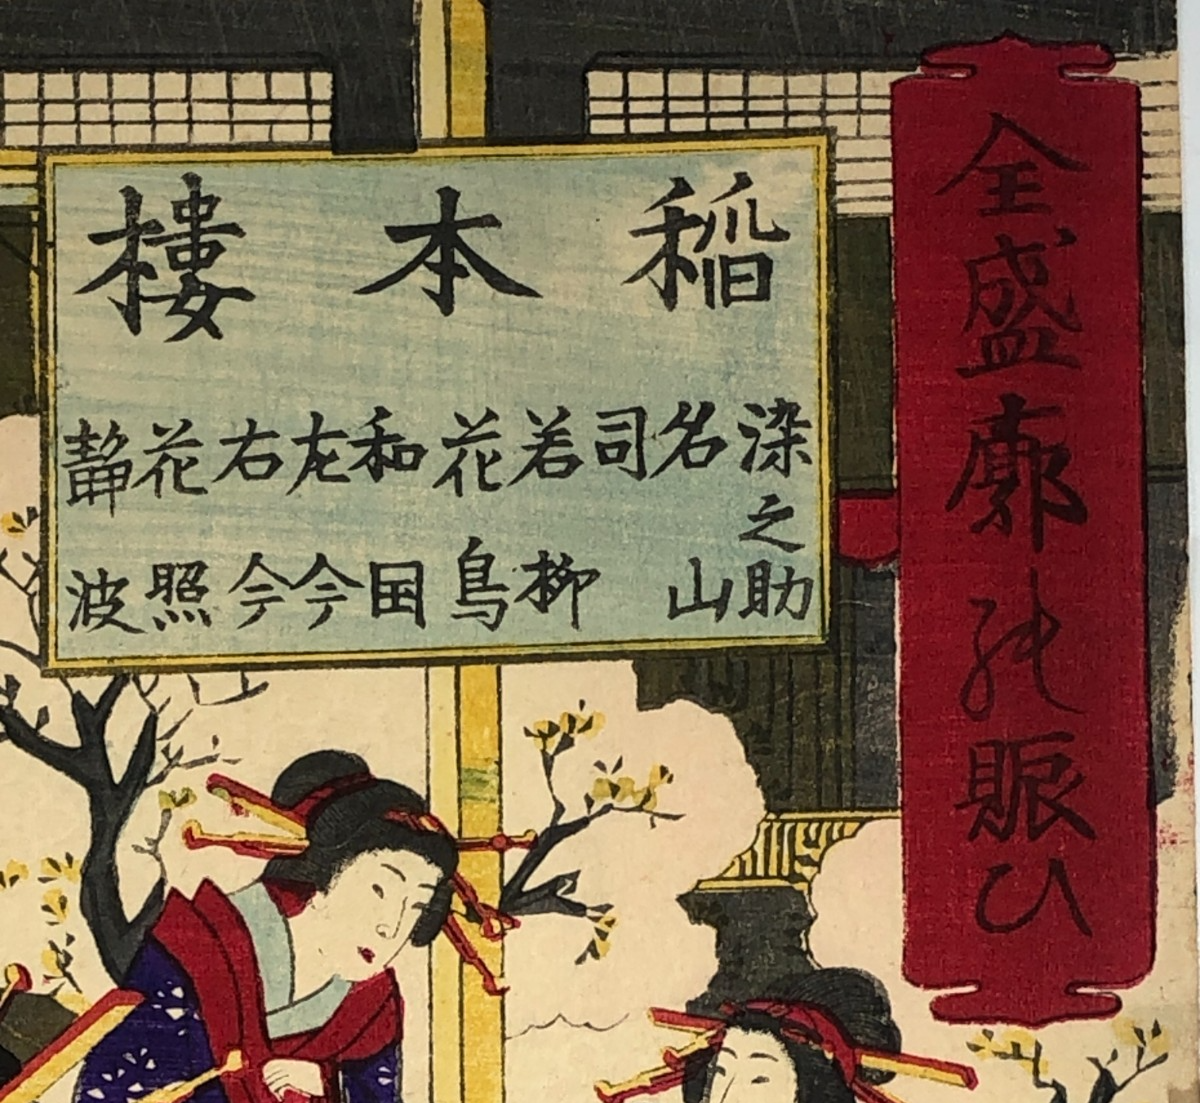 全盛廓の賑ひ
稲本樓
染之助
名山
司
若柳
花鳥
和国
左今
右今
花照
静波